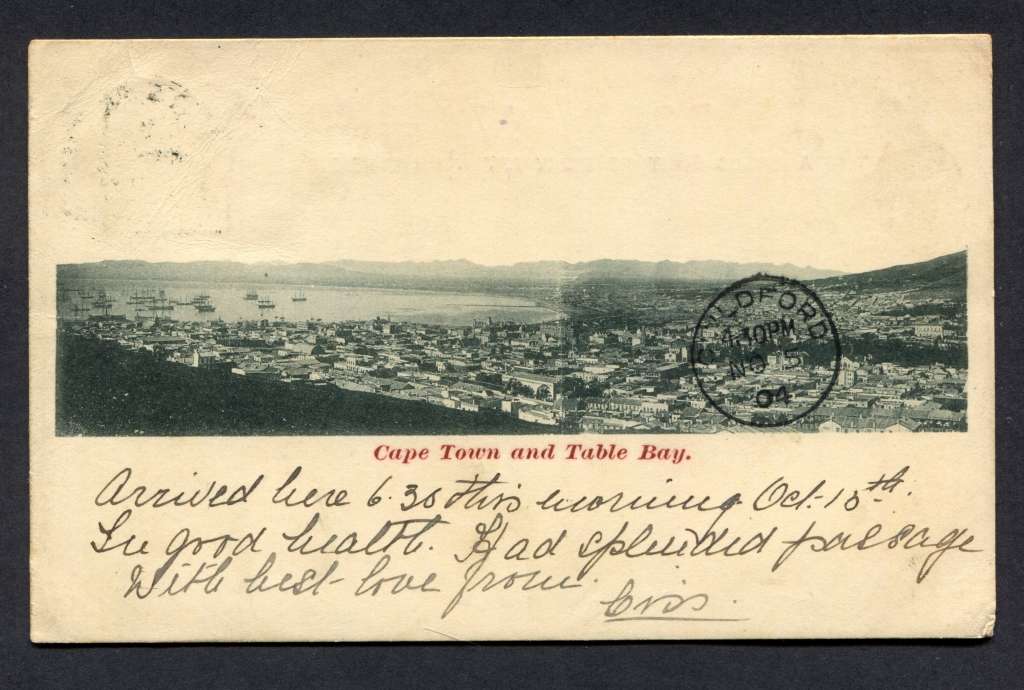 GUILDFORD
4.40PM
NO 5
04
Cape Town and Table Bay.
Arrived here 6.30 this morning Oct. 18th.
In good health. Had splendid passage
With best love from
Ciss.